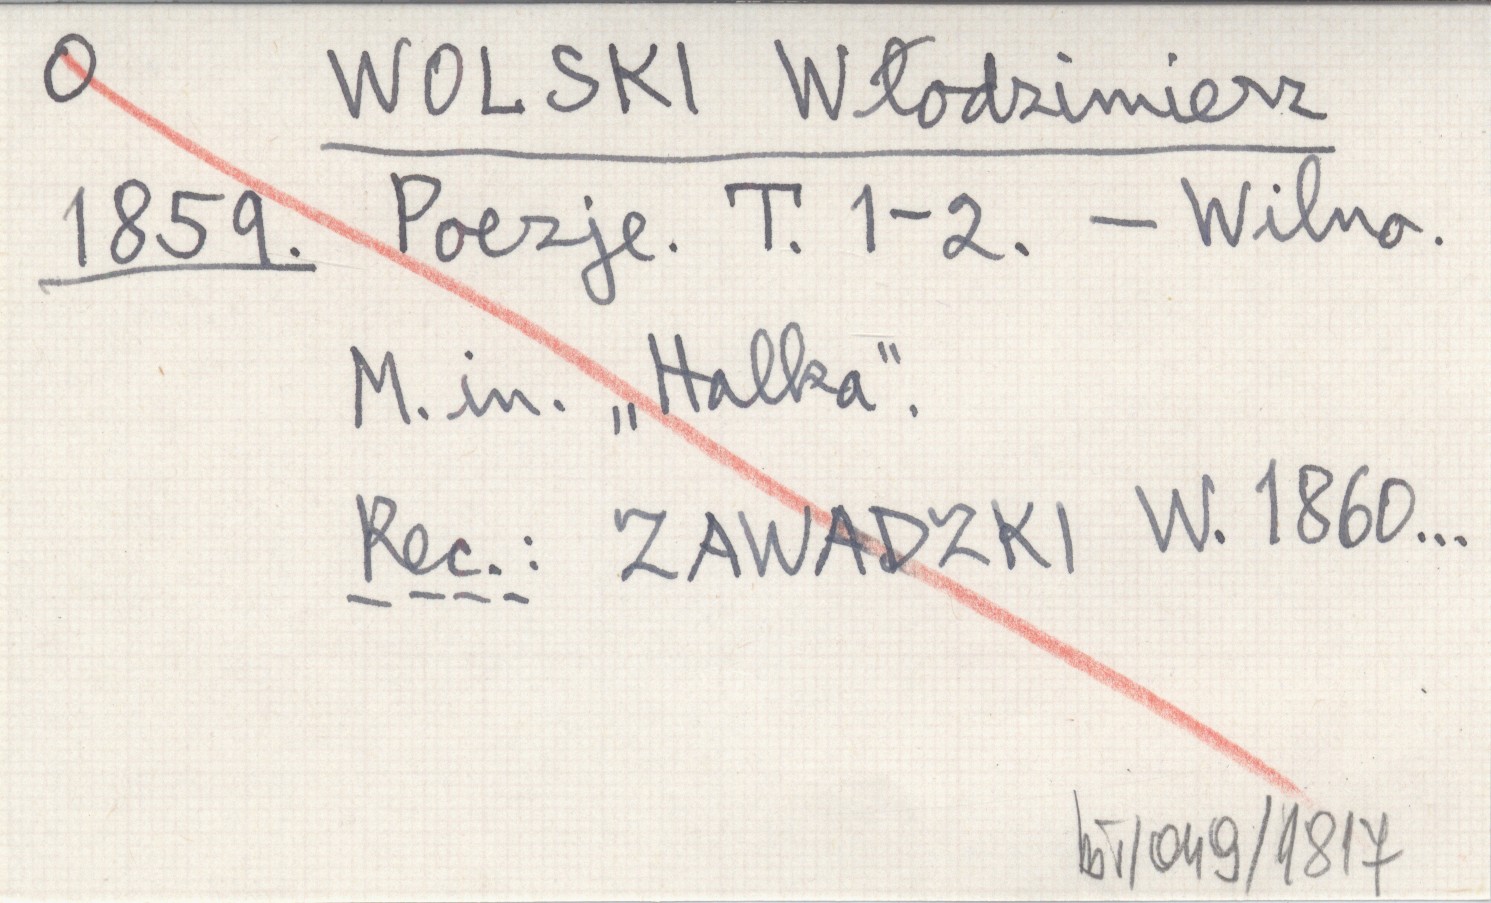 O WOLSKI Włodzimierz
1859. Poezje. T. 1-2. — Wilno.
M. in. „Halka".
Rec.: ZAWADZKI W. 1860...
/049/1817